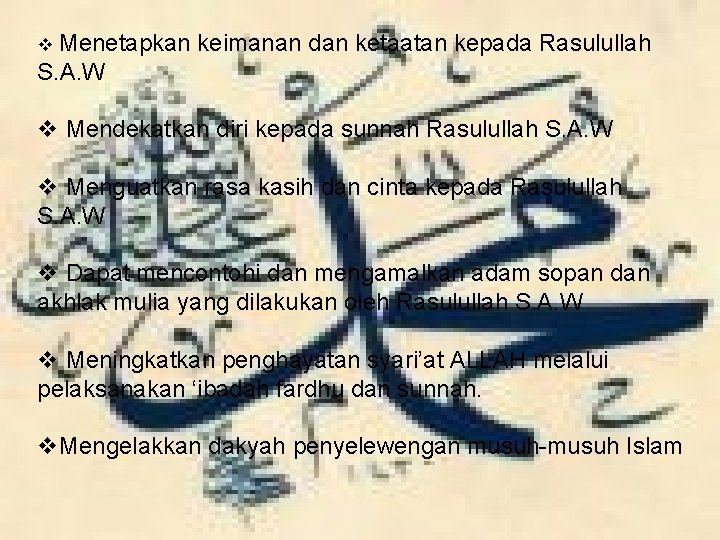 ❖ Menetapkan keimanan dan ketaatan kepada Rasulullah
S.A.W
❖ Mendekatkan diri kepada sunnah Rasulullah S.A.W
❖ Menguatkan rasa kasih dan cinta kepada Rasulullah
S.A.W
❖ Dapat mencontohi dan mengamalkan adam sopan dan
akhlak mulia yang dilakukan oleh Rasulullah S.A.W
❖ Meningkatkan penghayatan syari’at ALLAH melalui
pelaksanakan ‘ibadah fardhu dan sunnah.
❖Mengelakkan dakyah penyelewengan musuh-musuh Islam
محمد